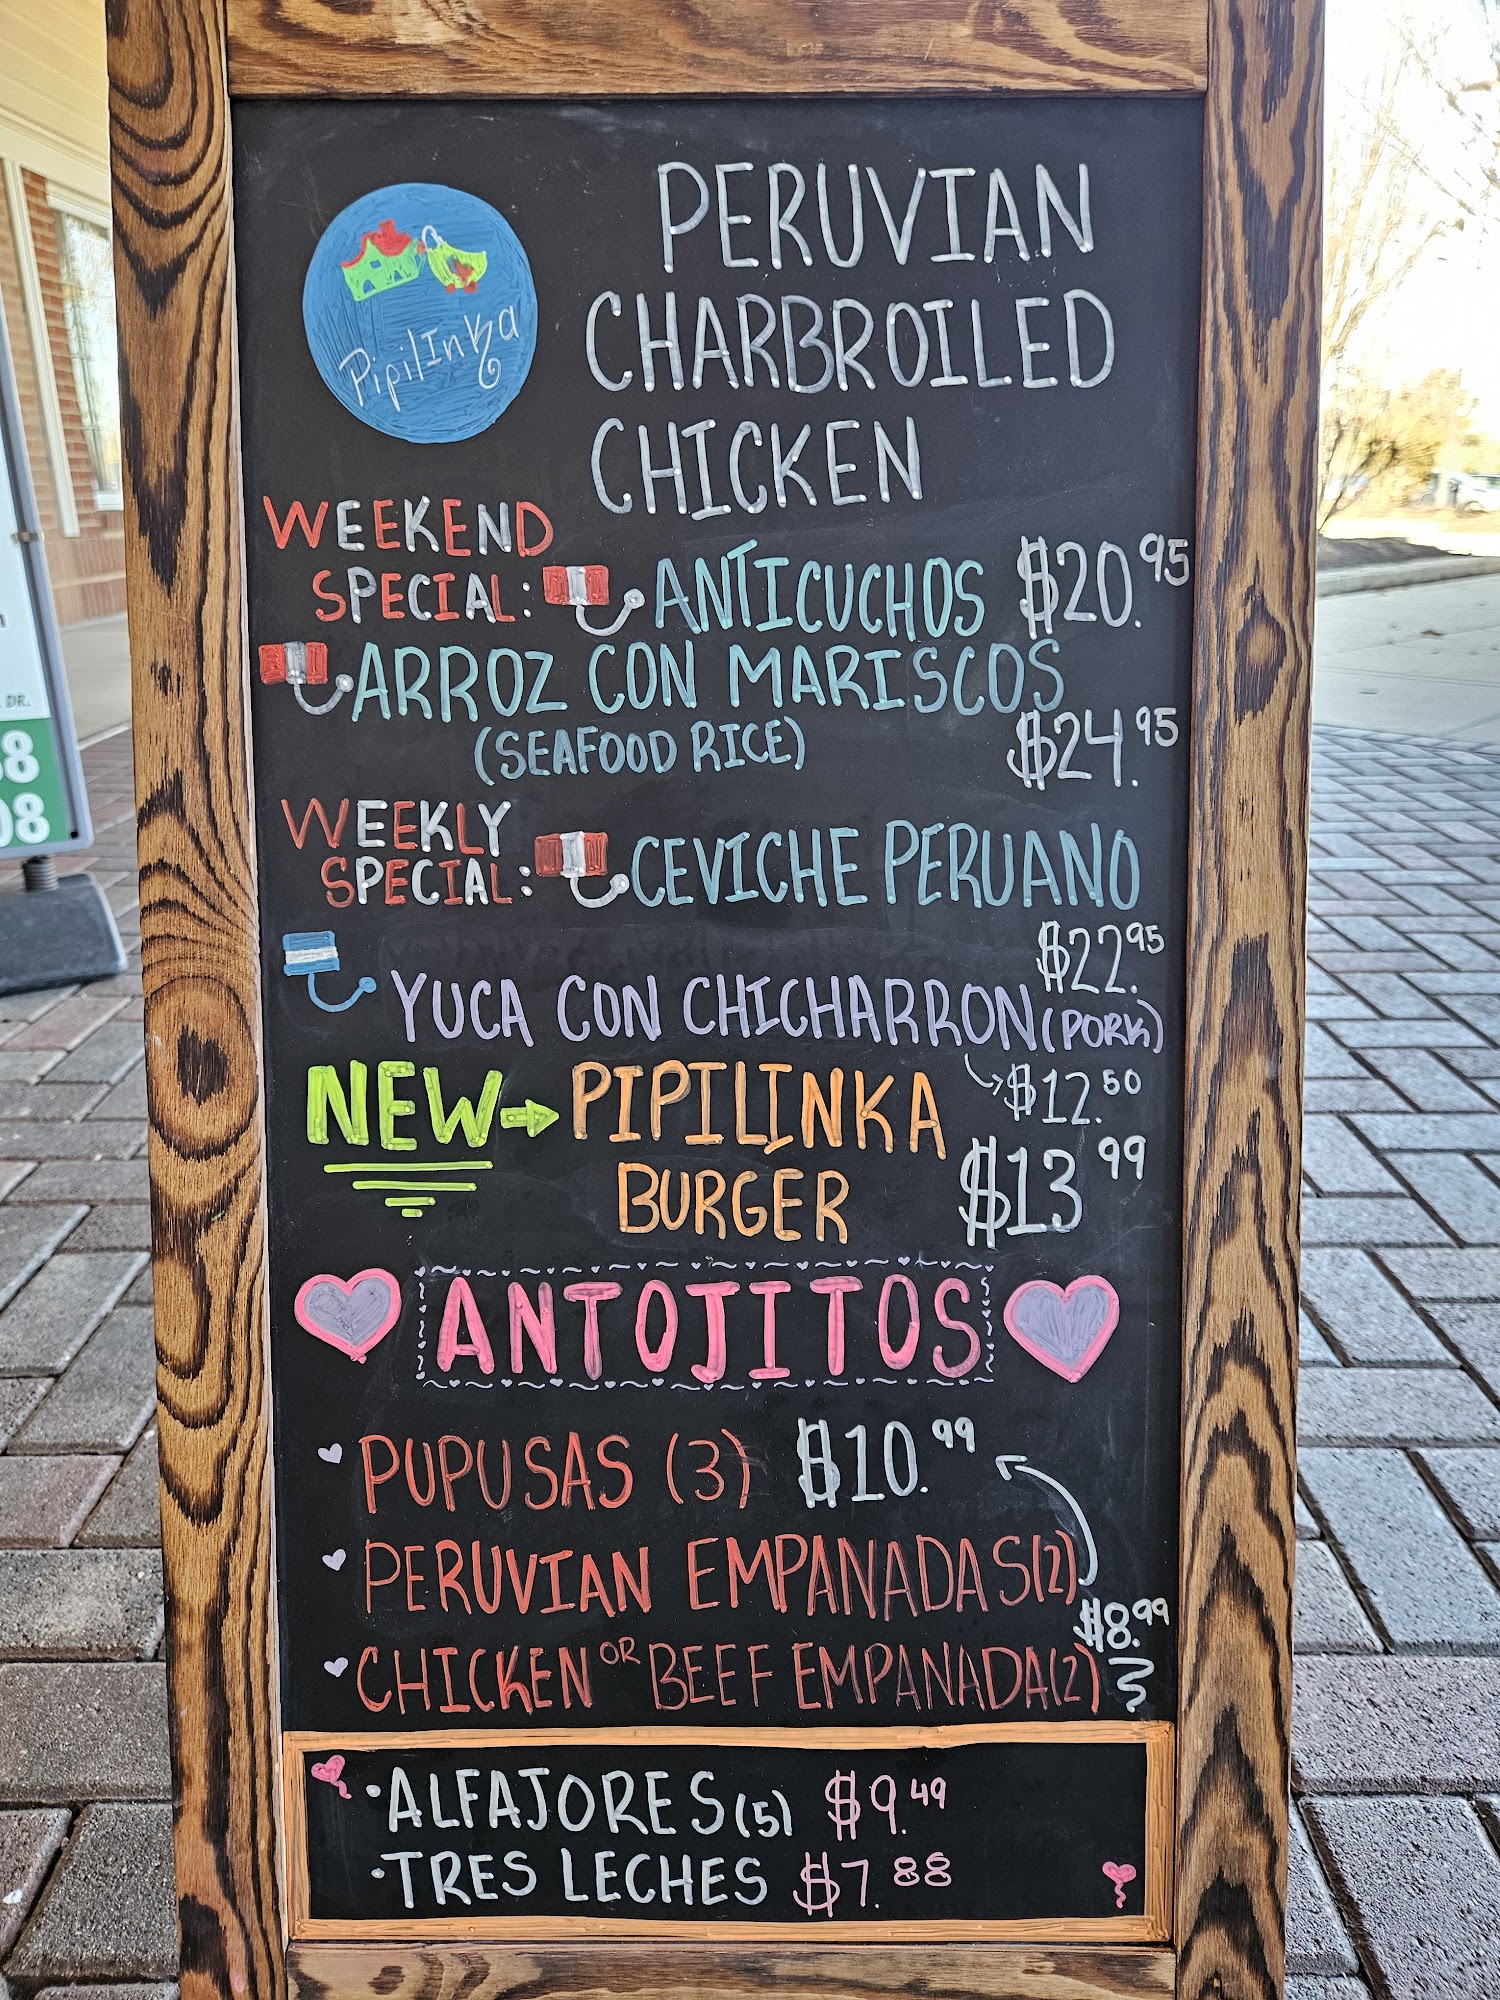 PipilInka
PERUVIAN
CHARBROILED
CHICKEN
WEEKEND
SPECIAL:
ANTICUCHOS $20.95
ARROZ CON MARISCOS
(SEAFOOD RICE) $24.95
WEEKLY
SPECIAL:
CEVICHE PERUANO
$22.95
YUCA CON CHICHARRON (PORK)
$12.50
NEW → PIPILINKA
BURGER $13.99
ANTOJITOS
PUPUSAS (3) $10.99
PERUVIAN EMPANADAS (2)
$8.99
CHICKEN OR BEEF EMPANADA (2)
• ALFAJORES (5) $9.49
• TRES LECHES $7.88
DR.
8
08